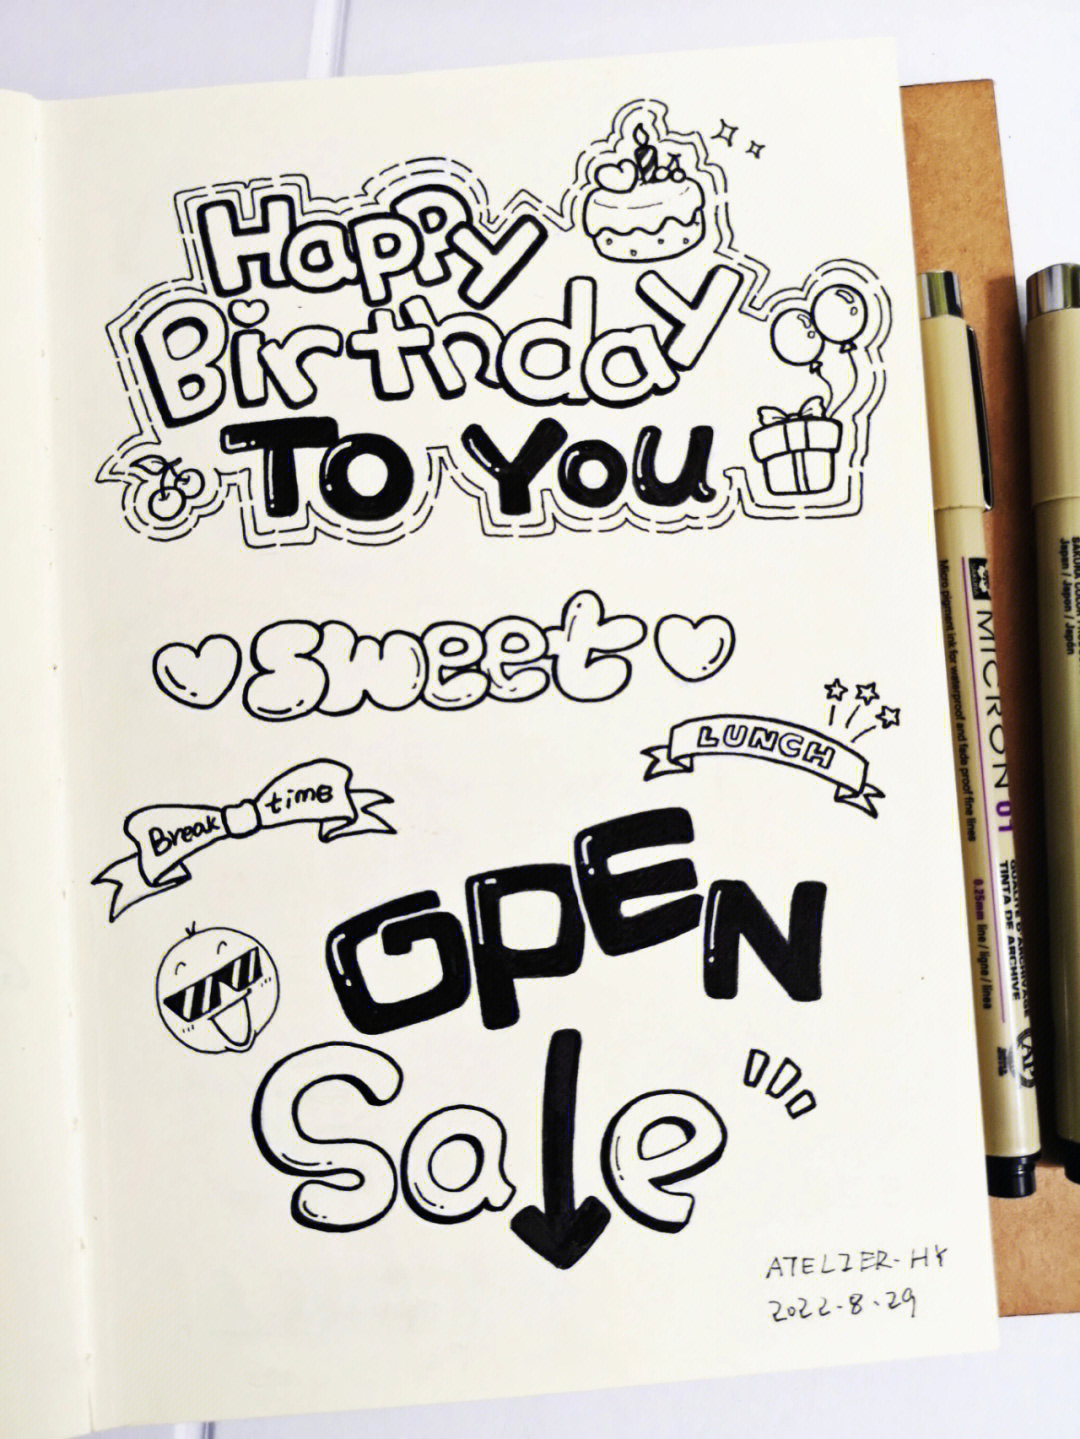 Happy
Birthday
TO YOU
sweet
LUNCH
Break time
OPEN
Sale
ATELIER-HY
2022-8-29
MICRON 01
Micro pigment ink for waterproof and fade proof fine lines
0.25mm line / ligne / línea
TINTA DE ARCHIVE
Japan / Japon / Japón